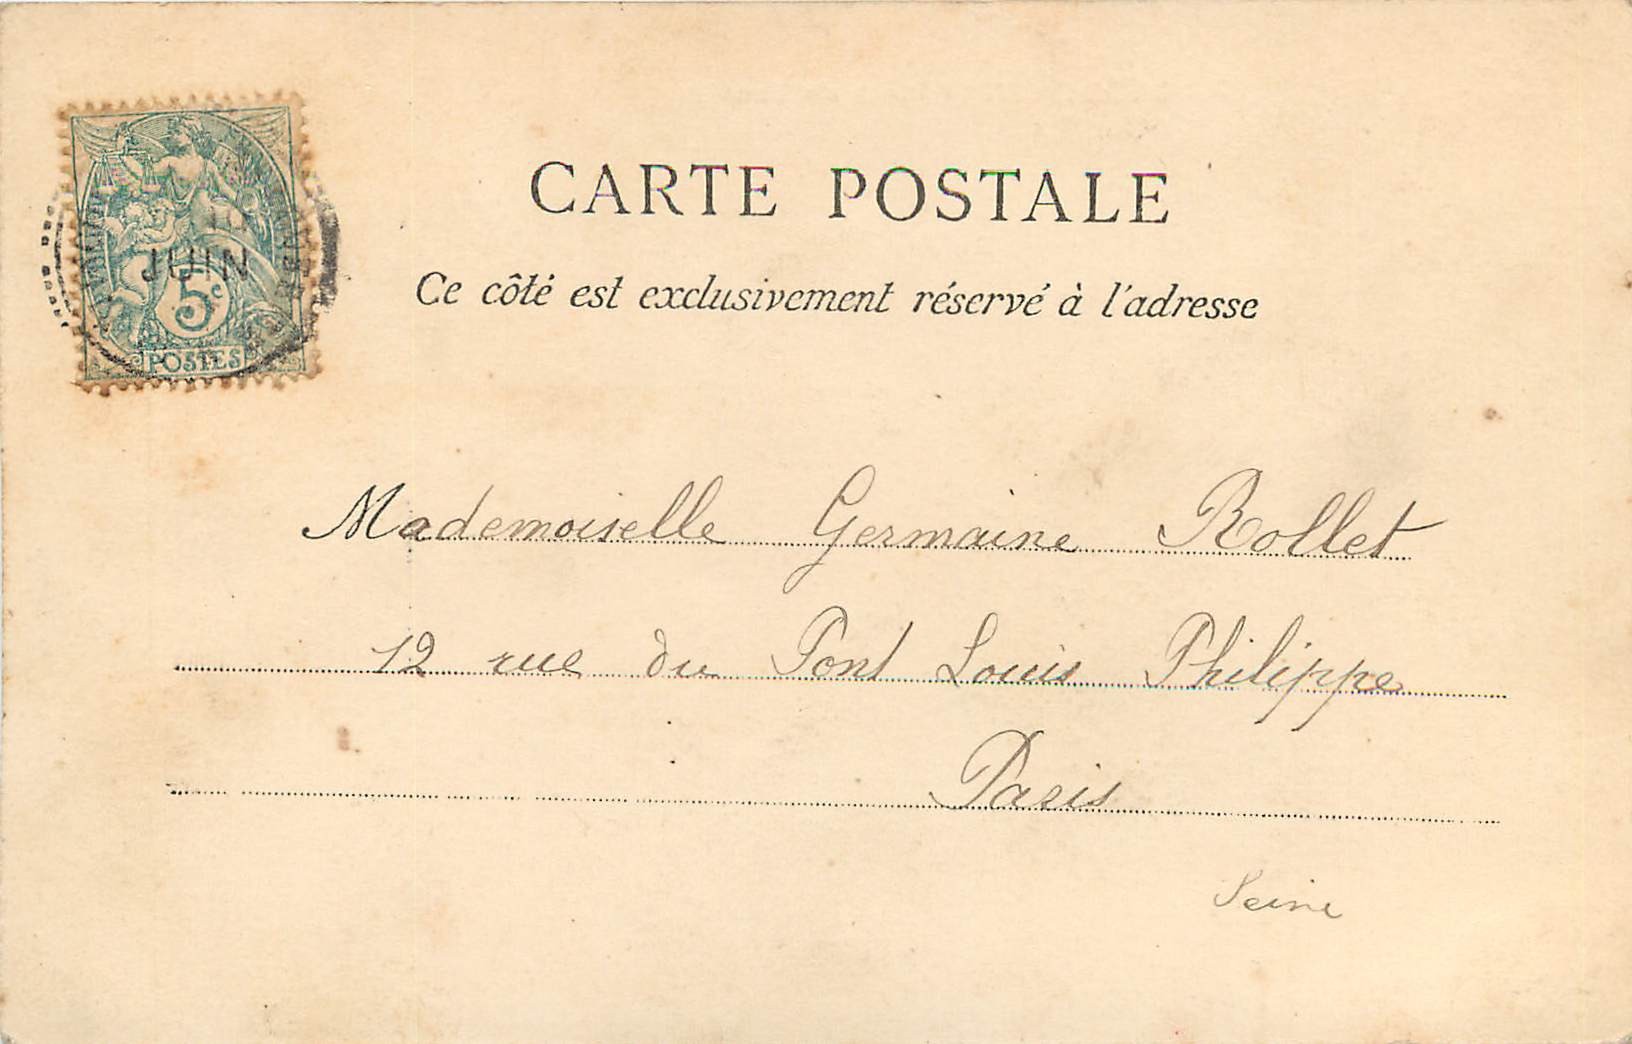 CARTE POSTALE
Ce côté est exclusivement réservé à l'adresse
JUIN
5c
POSTES
Mademoiselle Germaine Rollet
12 rue du Pont Louis Philippe
Paris
Seine